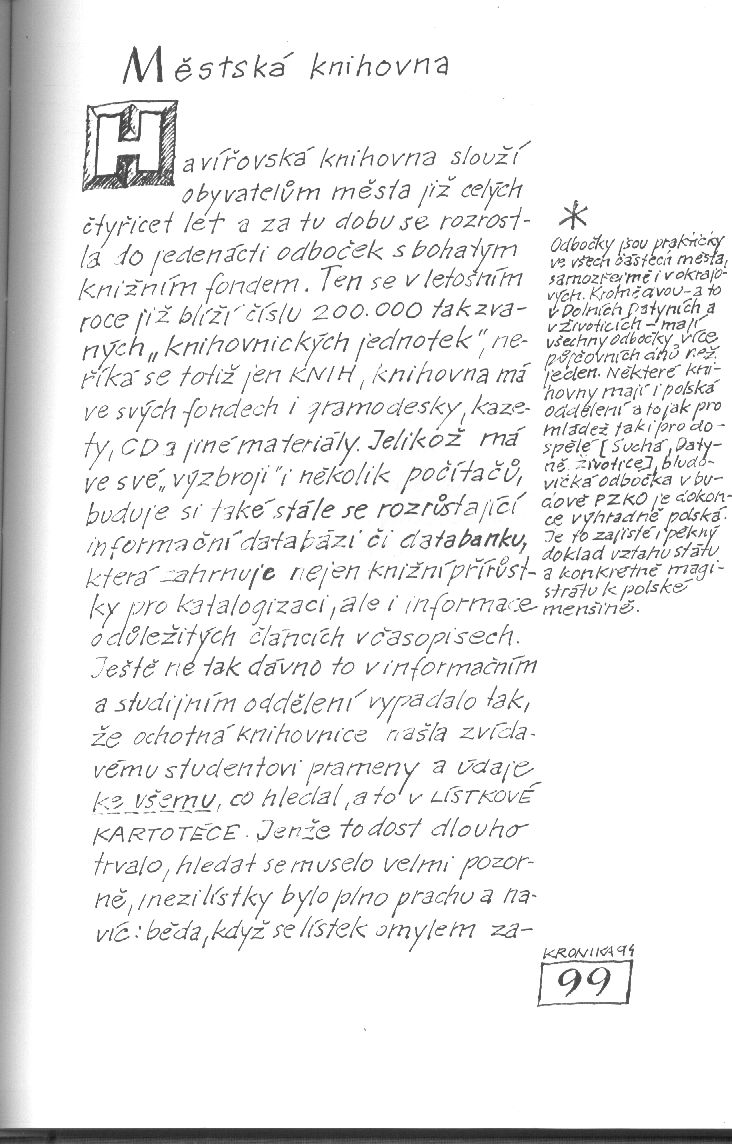 Městská knihovna
Havířovská knihovna slouží
obyvatelům města již celých
čtyřicet let a za tu dobu se rozrost-
la do jedenácti odboček s bohatým
knižním fondem. Ten se v letošním
roce již blíží číslu 200.000 takzva-
ných „knihovnických jednotek", ne-
říká se totiž jen KNIH, knihovna má
ve svých fondech i gramodesky, kaze-
ty, CD a jiné materiály. Jelikož má
ve své „výzbroji" i několik počítačů,
buduje si také stále se rozrůstající
informační databázi či databanku,
která zahrnuje nejen knižní přírůst-
ky pro katalogizaci, ale i informace
o důležitých článcích v časopisech.
Ještě ne tak dávno to v informačním
a studijním oddělení vypadalo tak,
že ochotná knihovnice našla zvída-
vému studentovi prameny a údaje
ke všemu, co hledal, a to v LÍSTKOVÉ
KARTOTÉCE. Jenže to dost dlouho
trvalo, hledat se muselo velmi pozor-
ně, mezi lístky bylo plno prachu a na-
víc: běda, když se lístek omylem za-
*
Odbočky jsou prakticky
ve všech částech města,
samozřejmě i v okrajo-
vých. Kromě dvou - a to
v Dolních Datyních a
v Životicích - mají
všechny odbočky více
půjčovních dnů než
jeden. Některé kni-
hovny mají i polská
oddělení a to jak pro
mládež tak i pro do-
spělé [Suchá, Daty-
ně, Životice], bludo-
vická odbočka v bu-
dově PZKO je dokon-
ce výhradně polská.
Je to zajisté i pěkný
doklad vztahu státu
a konkrétně magi-
strátu k polské
menšině.
KRONIKA 94
99